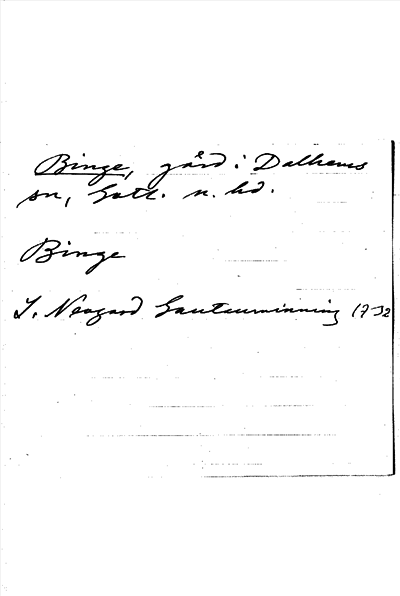 Binge, gård i Dalhems
sn, Gotl. n. hd.
Binge
J. Neogard Gautauminning 1732